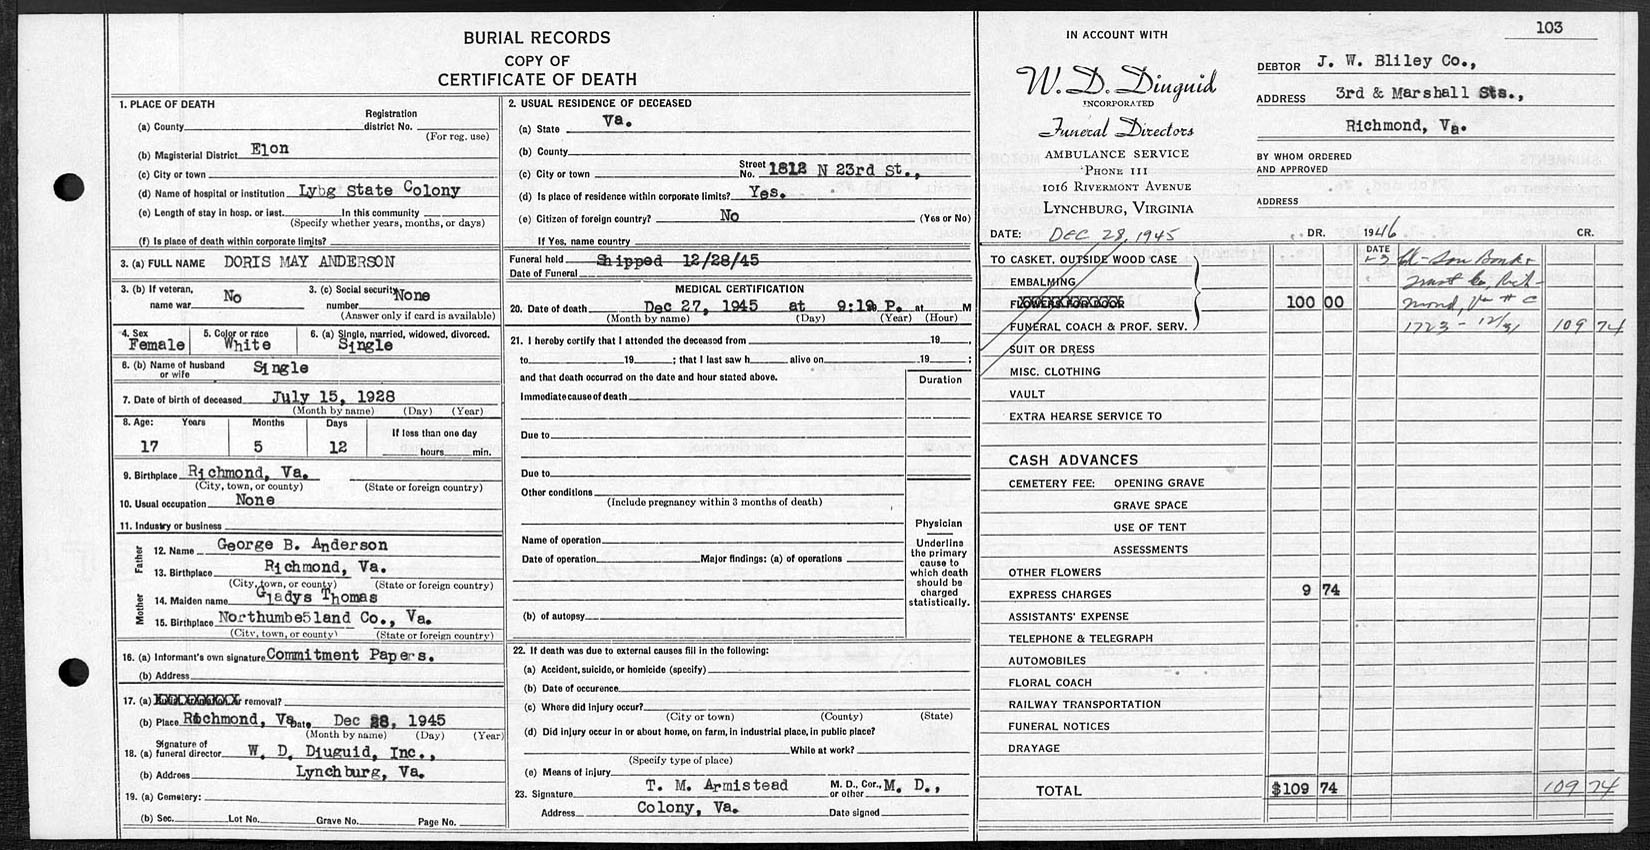 103
BURIAL RECORDS
COPY OF
CERTIFICATE OF DEATH
1. PLACE OF DEATH
Registration
(a) County district No.
(For reg. use)
(b) Magisterial District Elon
(c) City or town
(d) Name of hospital or institution Lybg State Colony
(e) Length of stay in hosp. or inst. In this community
(Specify whether years, months, or days)
(f) Is place of death within corporate limits?
3. (a) FULL NAME DORIS MAY ANDERSON
3. (b) If veteran, name war No
3. (c) Social security number None
(Answer only if card is available)
4. Sex Female
5. Color or race White
6. (a) Single, married, widowed, divorced. Single
6. (b) Name of husband or wife Single
7. Date of birth of deceased July 15, 1928
(Month by name) (Day) (Year)
8. Age: Years Months Days If less than one day
17 5 12 hours min.
9. Birthplace Richmond, Va.
(City, town, or county) (State or foreign country)
10. Usual occupation None
11. Industry or business
Father
12. Name George B. Anderson
13. Birthplace Richmond, Va.
(City, town, or county) (State or foreign country)
Mother
14. Maiden name Gladys Thomas
15. Birthplace Northumbe5land Co., Va.
(City, town, or county) (State or foreign country)
16. (a) Informant's own signature Commitment Papers.
(b) Address
17. (a) or removal?
(b) Place Richmond, Va Date Dec 28, 1945
(Month by name) (Day) (Year)
18. (a) Signature of funeral director W. D. Diuguid, Inc.,
(b) Address Lynchburg, Va.
19. (a) Cemetery:
(b) Sec. Lot No. Grave No. Page No.
2. USUAL RESIDENCE OF DECEASED
(a) State Va.
(b) County
(c) City or town Street No. 1812 N 23rd St.,
(d) Is place of residence within corporate limits? Yes.
(e) Citizen of foreign country? No (Yes or No)
If Yes, name country
Funeral held Shipped 12/28/45
Date of Funeral
MEDICAL CERTIFICATION
20. Date of death Dec 27, 1945 at 9:10 P. at M
(Month by name) (Day) (Year) (Hour)
21. I hereby certify that I attended the deceased from 19 ,
to 19 ; that I last saw h alive on 19 ;
and that death occurred on the date and hour stated above.
Duration
Immediate cause of death
Due to
Due to
Other conditions
(Include pregnancy within 3 months of death)
Physician
Underline the primary cause to which death should be charged statistically.
Name of operation
Date of operation Major findings: (a) of operations
(b) of autopsy
22. If death was due to external causes fill in the following:
(a) Accident, suicide, or homicide (specify)
(b) Date of occurence
(c) Where did injury occur?
(City or town) (County) (State)
(d) Did injury occur in or about home, on farm, in industrial place, in public place?
While at work?
(Specify type of place)
(e) Means of injury
23. Signature T. M. Armistead M. D., Cor., or other M. D.,
Address Colony, Va. Date signed
IN ACCOUNT WITH
W. D. Diuguid
INCORPORATED
Funeral Directors
AMBULANCE SERVICE
'PHONE 111
1016 RIVERMONT AVENUE
LYNCHBURG, VIRGINIA
DEBTOR J. W. Bliley Co.,
ADDRESS 3rd & Marshall Sts.,
Richmond, Va.
BY WHOM ORDERED
AND APPROVED
ADDRESS
DATE: DEC 28, 1945 DR. 1946 CR.
TO CASKET, OUTSIDE WOOD CASE
EMBALMING
FLOWERS FOR DOOR 100 00
FUNERAL COACH & PROF. SERV.
SUIT OR DRESS
MISC. CLOTHING
VAULT
EXTRA HEARSE SERVICE TO
DATE
1-3
Trust Co, Rich-
mond, Va # C
1723 - 12/31 109 74
CASH ADVANCES
CEMETERY FEE: OPENING GRAVE
GRAVE SPACE
USE OF TENT
ASSESSMENTS
OTHER FLOWERS
EXPRESS CHARGES 9 74
ASSISTANTS' EXPENSE
TELEPHONE & TELEGRAPH
AUTOMOBILES
FLORAL COACH
RAILWAY TRANSPORTATION
FUNERAL NOTICES
DRAYAGE
TOTAL $109 74 109 74